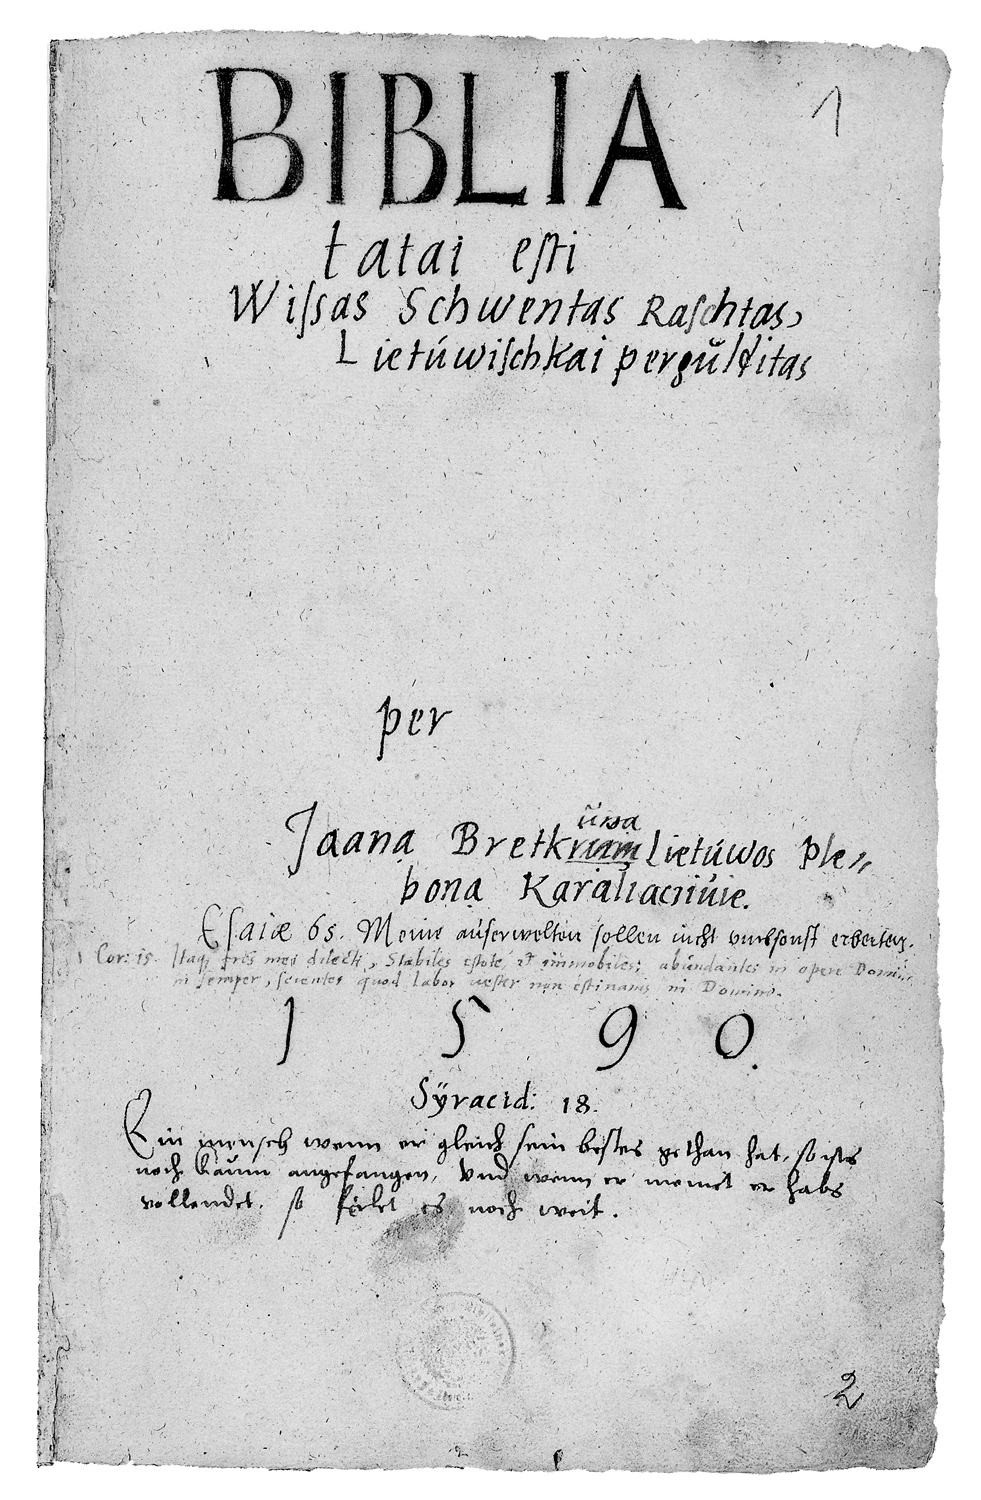 1
BIBLIA
tatai eſti
Wiſsas Schwentas Raſchtas,
Lietúwiſchkai pergulditas
per
ŭna
Jaaną Bretk Lietúwos Ple⸗
boną Karaliacziuie.
Eſaiæ 65. Meine auſerwelten ſollen nicht vmbſonſt erbeiten.
1 Cor: 15. Itaq, frēs mei dilecti, Stabiles eſtote, et immobiles, abundantes in opere Domi⸗
ni ſemper, ſcientes quod labor veſter non eſt inanis in Domino.
1 5 9 0.
Sÿracid: 18.
Ein menſch wenn er gleich ſein beſtes gethan hat, ſo iſts
noch kaum angefangen, vnd wenn er meinet er habs
vollendet, ſo feilet es noch weit.
2